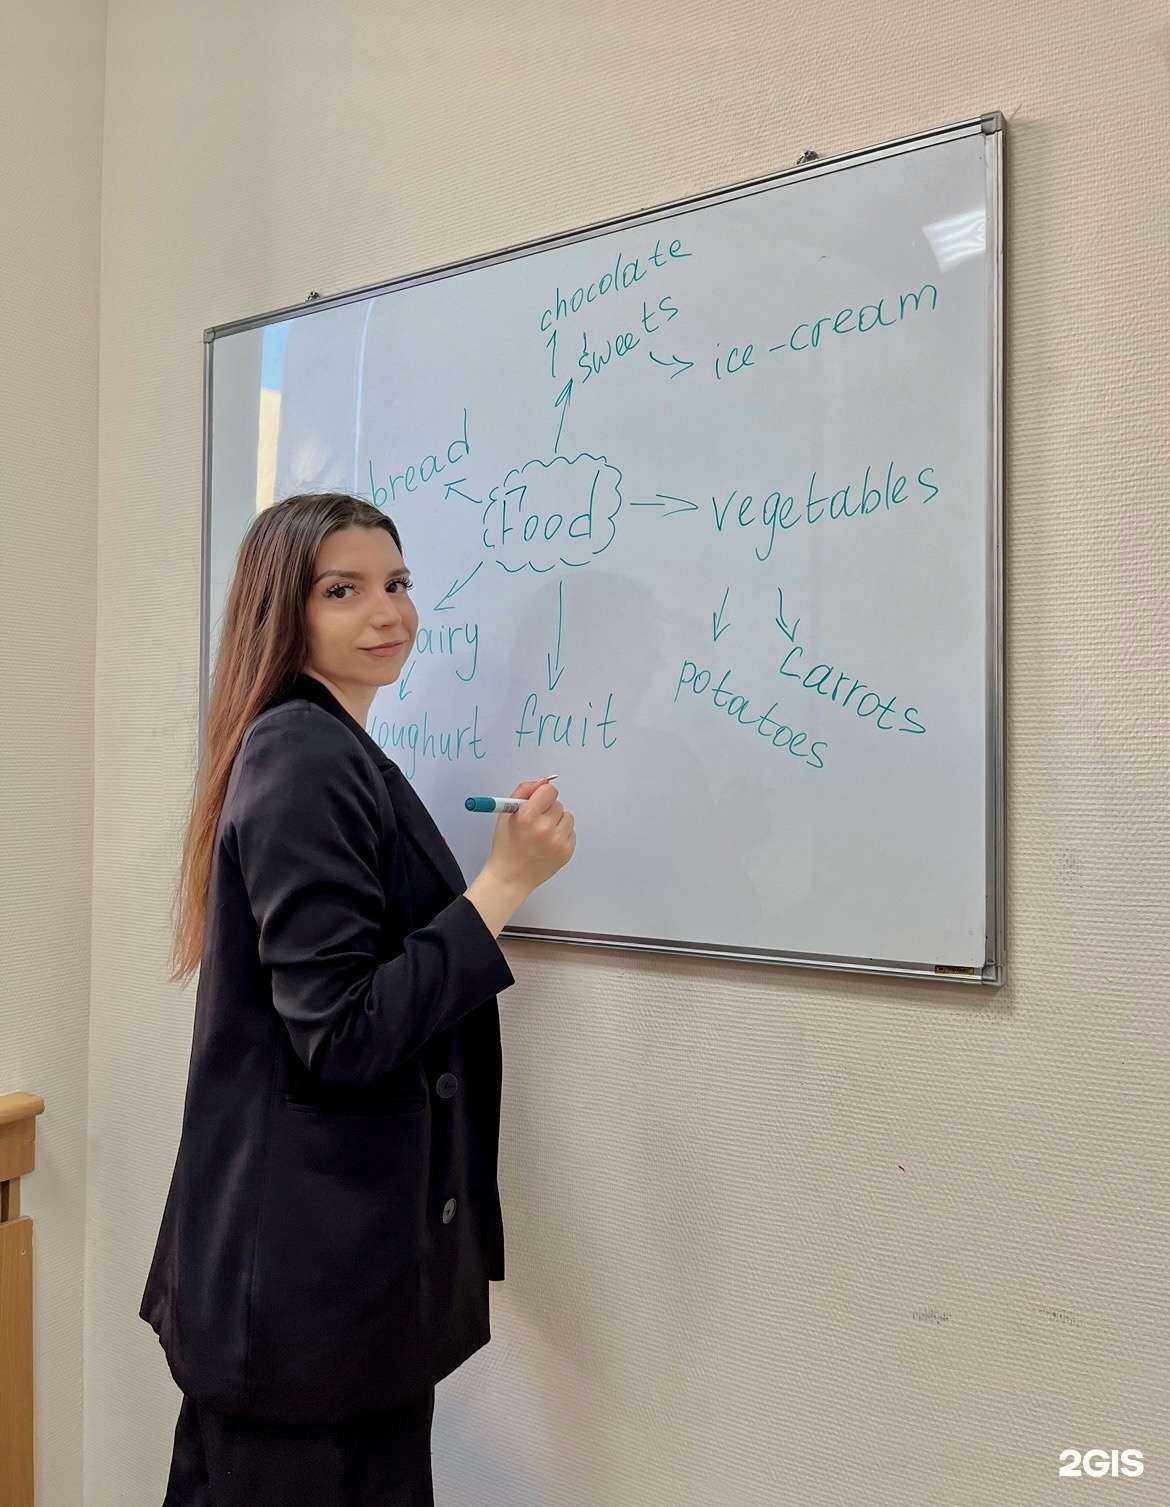 chocolate
sweets
ice-cream
bread
Food
vegetables
airy
fruit
potatoes
carrots
oughurt
2GIS